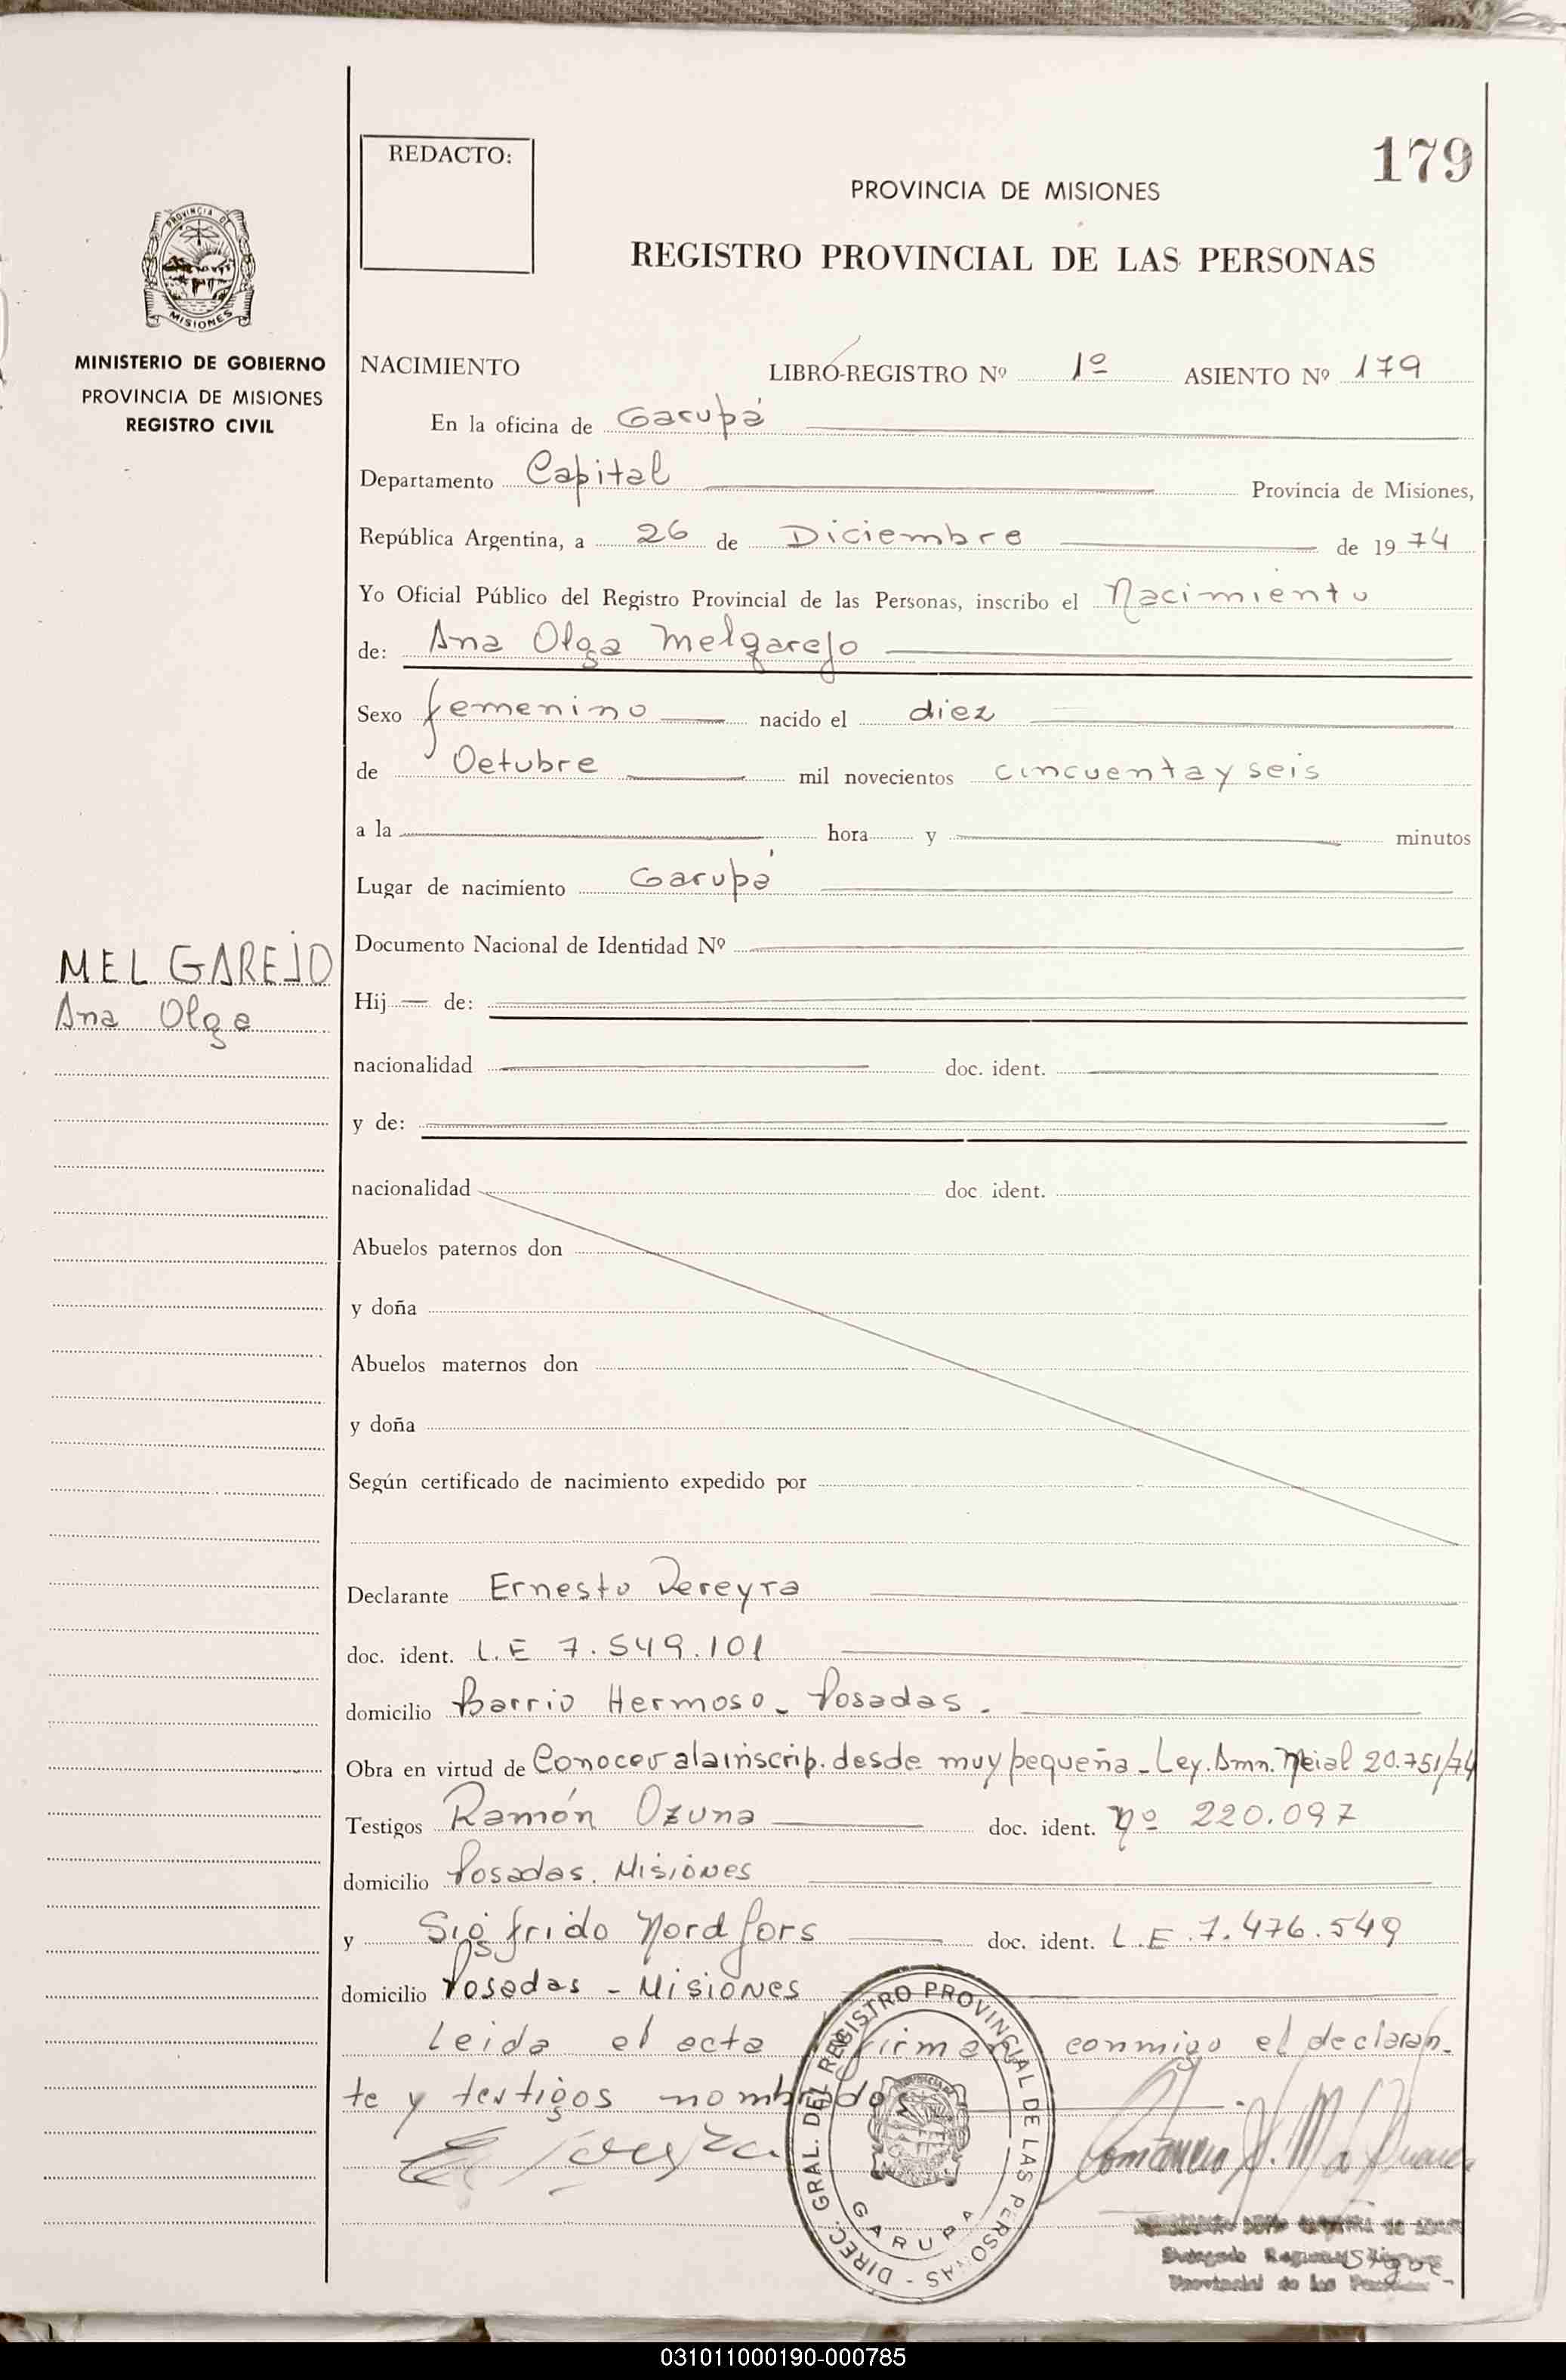 REDACTO:
179
PROVINCIA DE MISIONES
REGISTRO PROVINCIAL DE LAS PERSONAS
PROVINCIA DE
MISIONES
MINISTERIO DE GOBIERNO
PROVINCIA DE MISIONES
REGISTRO CIVIL
NACIMIENTO LIBRO-REGISTRO Nº 1º ASIENTO Nº 179
En la oficina de Garupá
Departamento Capital Provincia de Misiones,
República Argentina, a 26 de Diciembre de 1974
Yo Oficial Público del Registro Provincial de las Personas, inscribo el Nacimiento
de: Ana Olga Melgarejo
Sexo femenino nacido el diez
de Octubre mil novecientos cincuenta y seis
a la hora y minutos
Lugar de nacimiento Garupá
MELGAREJO
Ana Olga
Documento Nacional de Identidad Nº
Hij de:
nacionalidad doc. ident.
y de:
nacionalidad doc ident.
Abuelos paternos don
y doña
Abuelos maternos don
y doña
Según certificado de nacimiento expedido por
Declarante Ernesto Pereyra
doc. ident. L.E 7.549.101
domicilio Barrio Hermoso - Posadas.
Obra en virtud de Conocer a la inscrip. desde muy pequeña - Ley. Amn. Ncial 20.751/74
Testigos Ramón Ozuna doc. ident. Nº 220.097
domicilio Posadas. Misiones
y Sigfrido Nordfors doc. ident. L.E.7.476.549
domicilio Posadas - Misiones
Leida el acta firman conmigo el declaran-
te y testigos nombrados
DIREC. GRAL. DEL REGISTRO PROVINCIAL DE LAS PERSONAS -
GARUPA
Provincial de las Personas
Sigue -
031011000190-000785